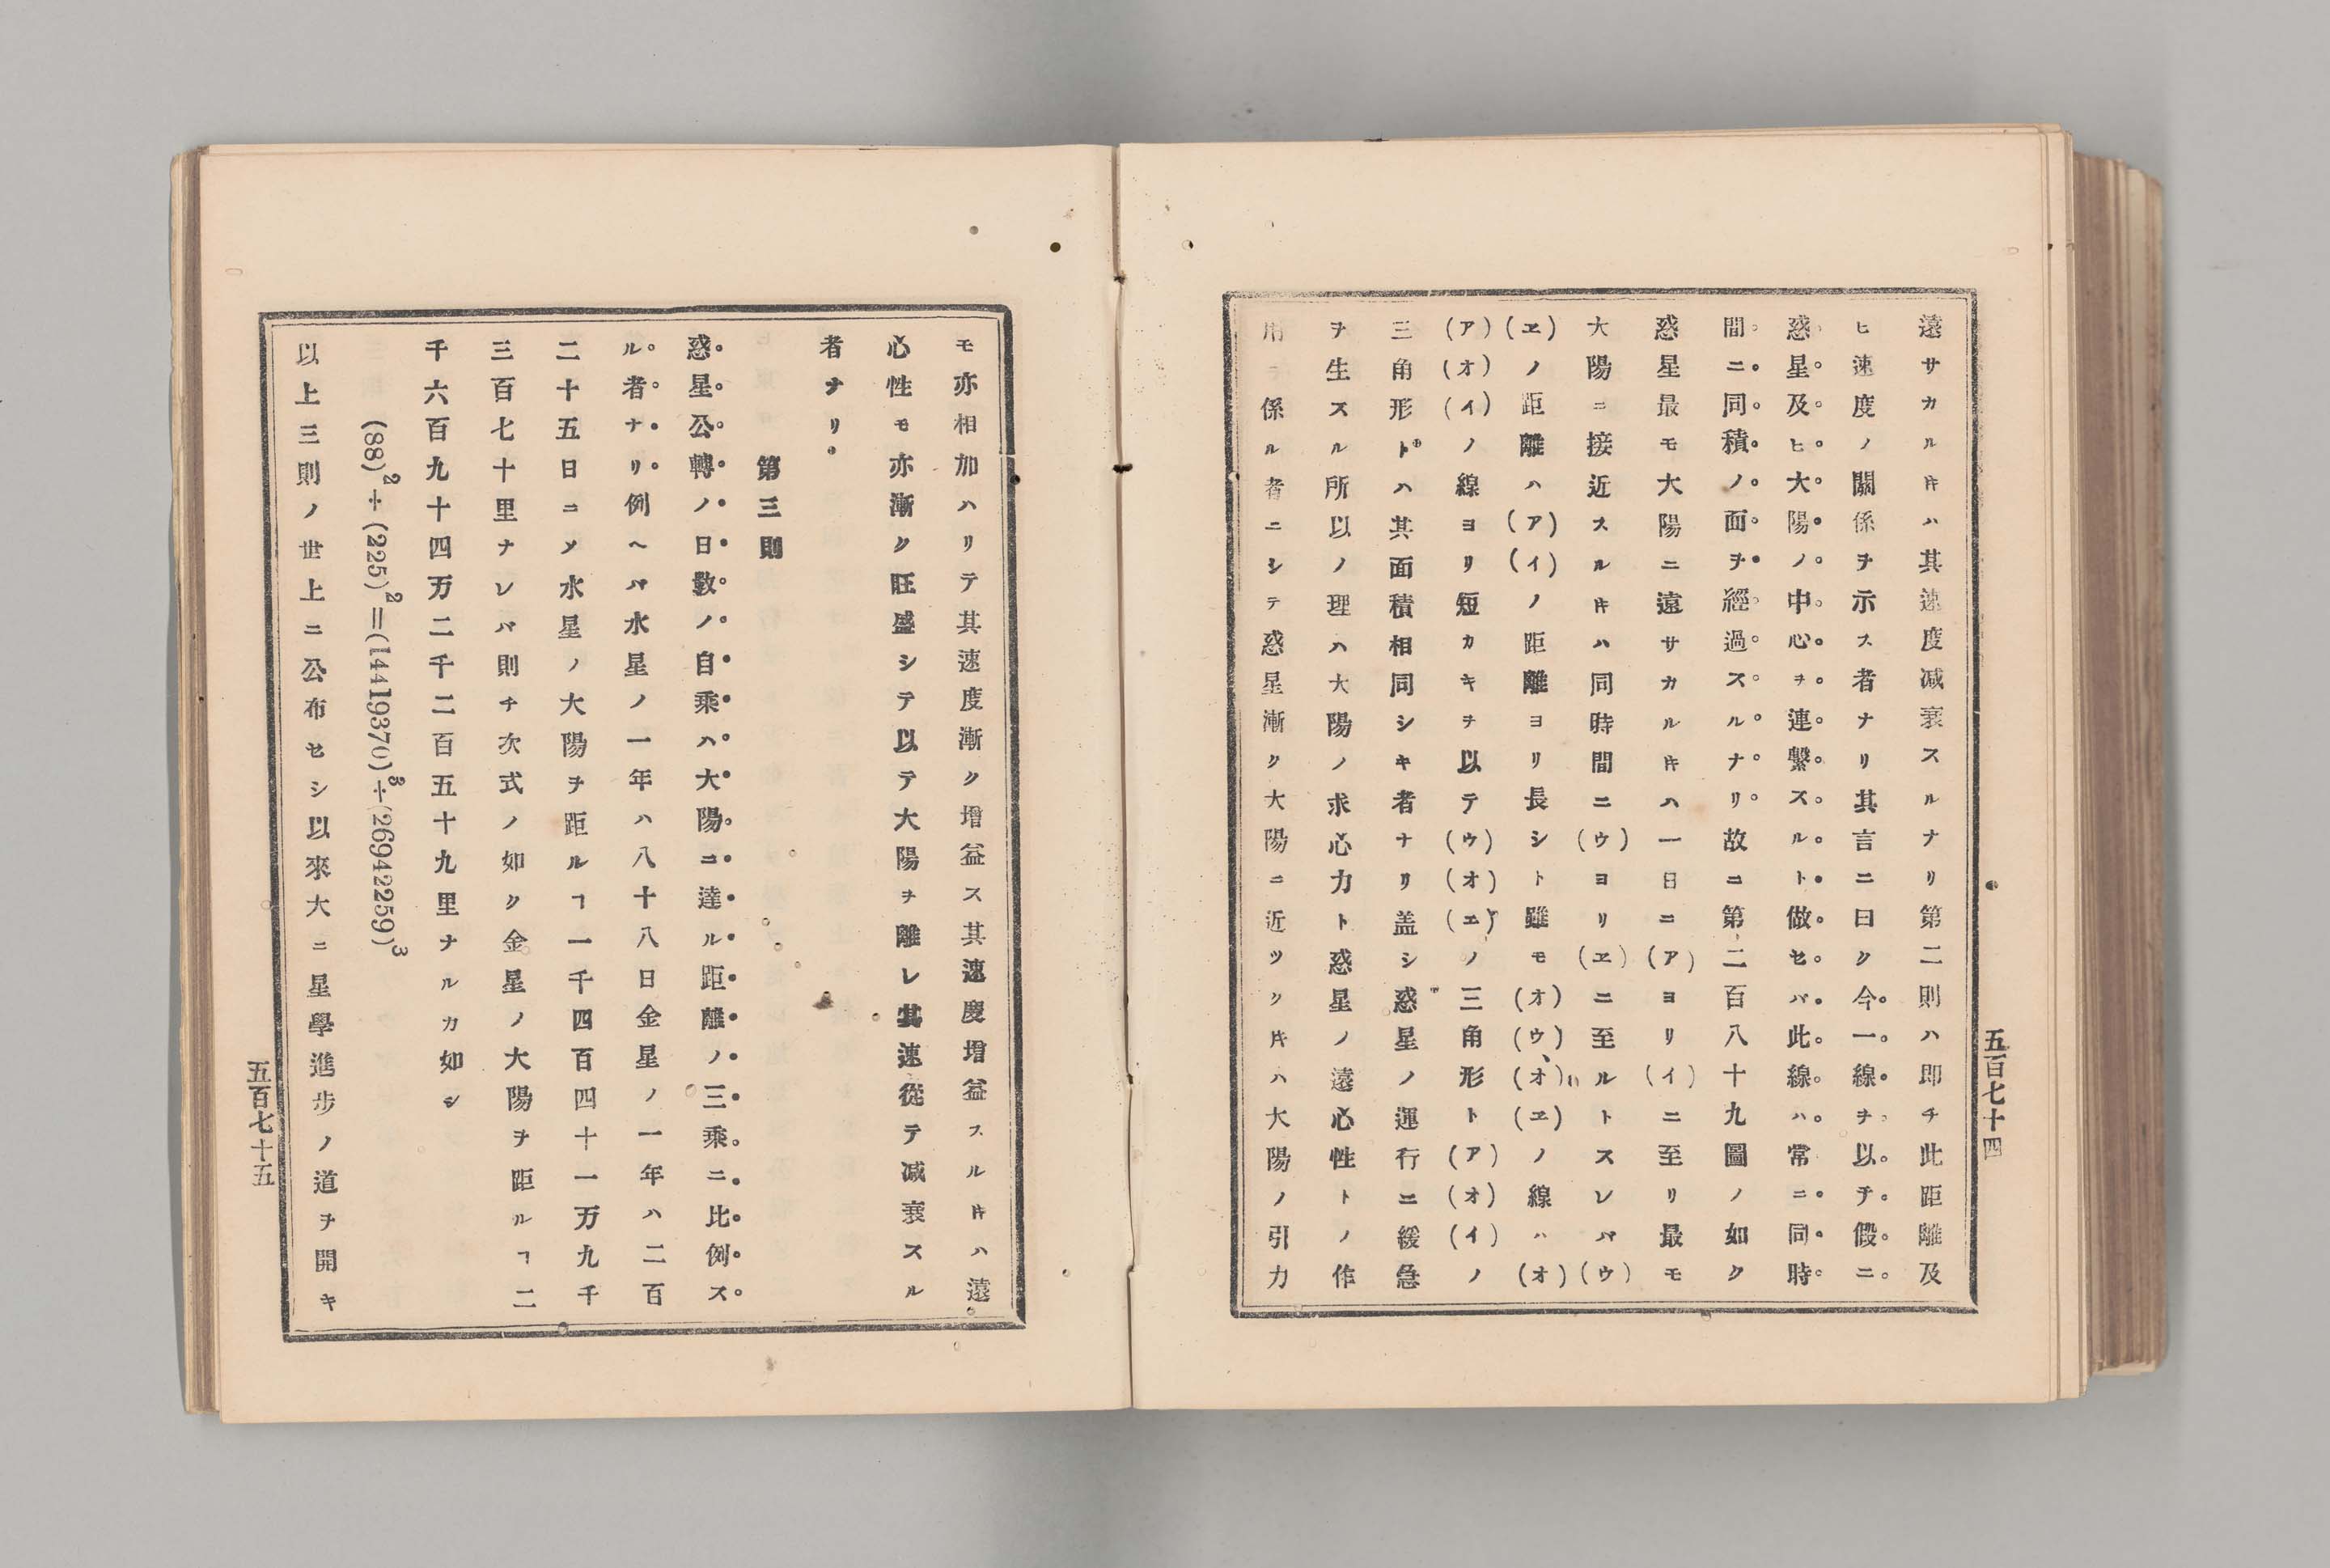 遠サカル𪜈ハ其速度减衰スルナリ第二則ハ即チ此距離及
ヒ速度ノ關係ヲ示ス者ナリ其言ニ曰ク今一線ヲ以テ假ニ
惑星及ヒ大陽ノ中心ヲ連繫スルト做セバ此線ハ常ニ同時
間ニ同積ノ面ヲ經過スルナリ故ニ第二百八十九圖ノ如ク
惑星最モ大陽ニ遠サカル𪜈ハ一日ニ(ア)ヨリ(イ)ニ至リ最モ
大陽ニ接近スル𪜈ハ同時間ニ(ウ)ヨリ(ヱ)ニ至ルトスレバ(ウ)
(ヱ)ノ距離ハ(ア)(イ)ノ距離ヨリ長シト雖モ(オ)(ウ)、(オ)(ヱ)ノ線ハ(オ)
(ア)(オ)(イ)ノ線ヨリ短カキヲ以テ(ウ)(オ)(エ)ノ三角形ト(ア)(オ)(イ)ノ
三角形トハ其面積相同シキ者ナリ盖シ惑星ノ運行ニ緩急
ヲ生スル所以ノ理ハ大陽ノ求心力ト惑星ノ遠心性トノ作
用ニ係ル者ニシテ惑星漸ク大陽ニ近ツク𪜈ハ大陽ノ引力
五百七十四
モ亦相加ハリテ其速度漸ク增益ス其速度增益スル𪜈ハ遠
心性モ亦漸ク旺盛シテ以テ大陽ヲ離レ其速從テ减衰スル
者ナリ
第三則
惑星公轉ノ日數ノ自乘ハ大陽ニ達ル距離ノ三乘ニ比例ス
ル者ナリ例ヘバ水星ノ一年ハ八十八日金星ノ一年ハ二百
二十五日ニメ水星ノ大陽ヲ距ルヿ一千四百四十一万九千
三百七十里ナレバ則チ次式ノ如ク金星ノ大陽ヲ距ルヿ二
千六百九十四万二千二百五十九里ナルカ如シ
(88)²÷(225)²=(14419370)³÷(26942259)³
以上三則ノ世上ニ公布セシ以來大ニ星學進步ノ道ヲ開キ
五百七十五